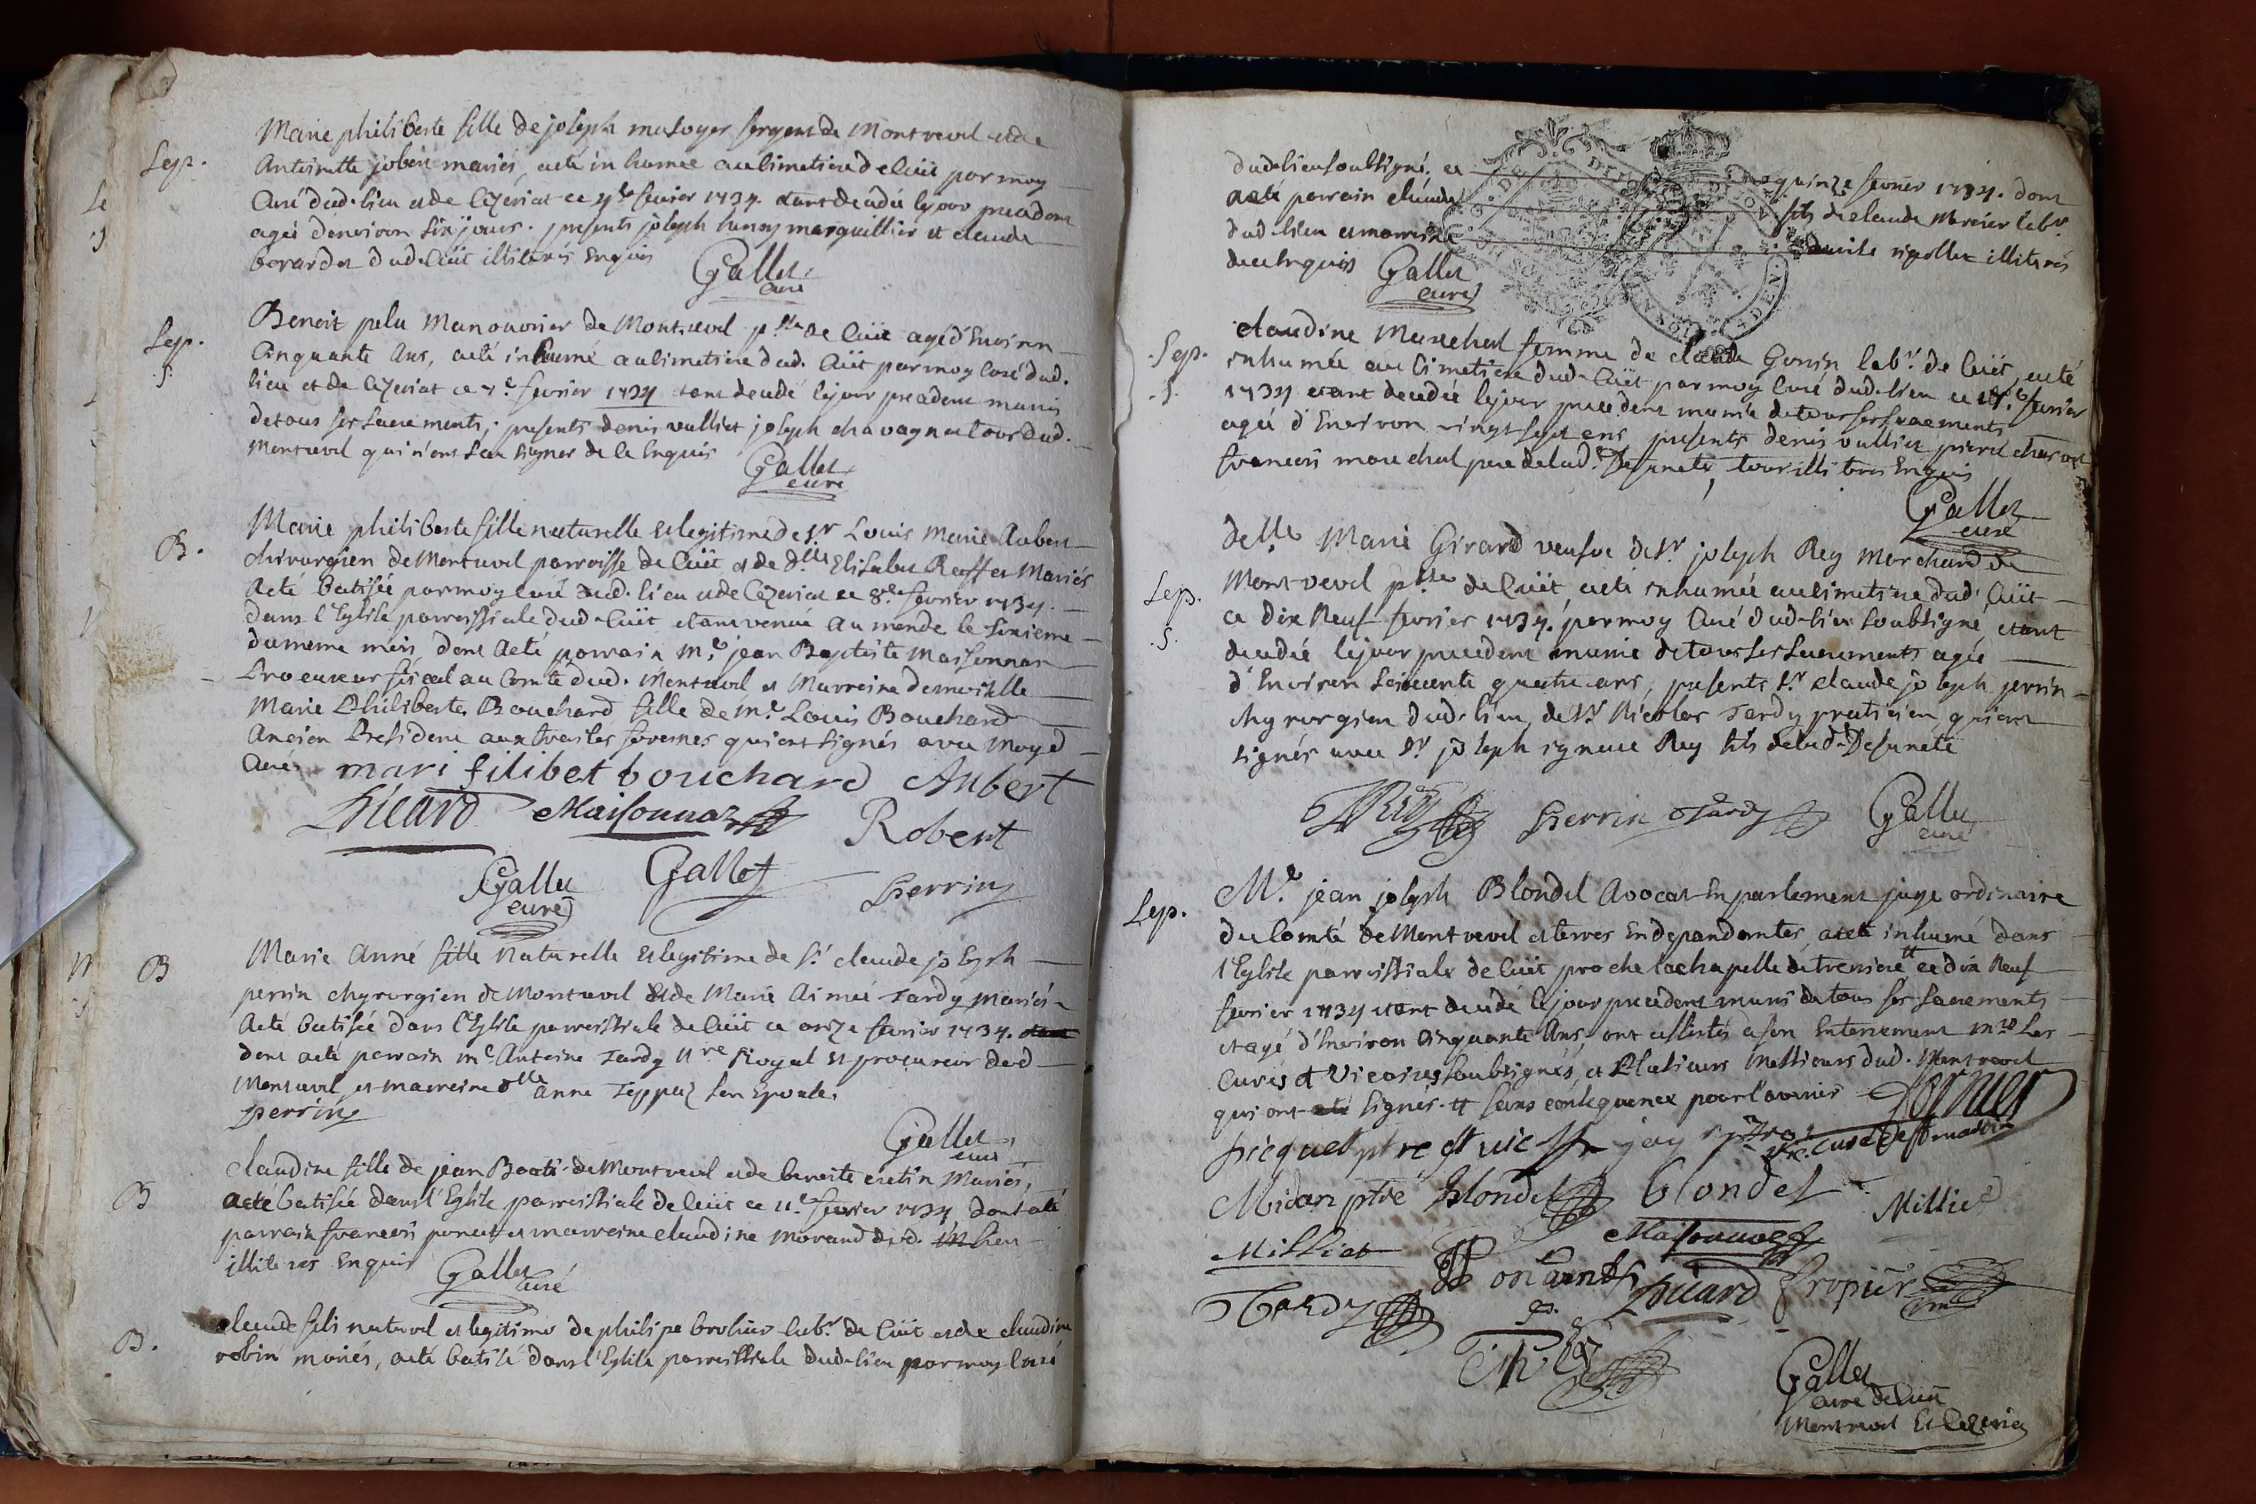 Sep.
Marie philiberte fille de joseph mesoyer sergent de Montrevel et de
Antoinette jobert mariés, a eté in humée au cimetiere de Cuët par moy
Curé dud. lieu et de Cezeriat ce fevrier 1734. etant decedée le jour precedent
agée d'environ six jours. presents joseph humoy marguillier et claude
berardet dud. Cüet illiterés Enquis
Gallet
curé
Sep.
f.
Benoit pelu Manouvrier de Montrevel psse de Cüet agé d'Environ
Cinquante Ans, a eté inhumé au cimetiere dud. Cüet par moy Curé dud.
lieu et de Cezeriat ce 7e fevrier 1734 etant decedé le jour precedent munis
de tous ses Sacrements, presents denis vulliet joseph chavagnat tous dud.
Montrevel qui n'ont sceu signer de ce Enquis
Gallet
curé
B.
Marie philiberte fille naturelle et legitime de Sr Louis Marie Aubert
chirurgien de Montrevel parroisse de Cüet et de dlle Elisabet Reffet Mariés
A eté batisée par moy curé dud. lieu et de Cezeriat ce 8e fevrier 1734.
dans l'Eglise parroissiale dud. Cüet etant venüe au monde le sixieme
du meme mois, dont a eté parrain Me jean Baptiste Maisonnas
Procureur fiscal au Comté dud. Montrevel et Marraine demoiselle
Marie Philiberte Bouchard fille de Me Louis Bouchard
Ancien President aux traites foraines qui ont signés avec moy d
Curé
mari filibet bouchard Aubert
Picard Maisonnas Robert
Gallet Gallet Perrin
curé
B
Marie Anne fille naturelle et legitime de Sr claude joseph
perrin chyrurgien de Montrevel et de Marie Aimée Tardy Mariés
A eté batisée dans l'Eglise parroissiale de Cüet ce onze fevrier 1734.
dont a eté parrain Me Antoine Tardy Nre Royal et procureur dud
Montrevel et marraine dlle anne Teppaz son Epouse.
perrin
Gallet
curé
B
claudine fille de jean Boati de Montrevel et de benoite cretin Mariés,
a eté batisée dans l'Eglise parroissiale de Cüet ce 11e fevrier 1734 dont a eté
parrain francois poncet et marraine claudine morand dud. lieu
illiteres Enquis
Gallet
curé
B.
claude fils naturel et legitime de philipe brohier labr de Cüet et de claudine
robin mariés, a eté batisé dans l'Eglise parroissiale dud. lieu par moy Curé
dud. lieu soubsigné, ce quinze fevrier 1734. dont
a eté parrain claude fils de claude Mercier labr
dud. lieu et marraine ripollet illiterés
de ce Enquis
Gallet
curé
Sep.
f.
claudine Marechal femme de claude Gonin labr de Cüet, a eté
inhumée au Cimetiere dud. Cüet par moy Curé dud. lieu ce fevrier
1734 etant decedée le jour precedent munie de tous ses sacrements
agée d'Environ vingt sept ans, presents denis vulliet pierre
francois marechal pere de lad. Defunete, tous illiterés Enquis
Gallet
curé
Sep.
f.
delle Marie Girard veufve de Sr joseph Rey Marchand de
Montrevel psse de Cüet, a eté inhumée au cimetiere dud. Cüet
ce dix Neuf fevrier 1734. par moy Curé dud. lieu soubsigné, etant
decedée le jour precedent munie de tous ses sacrements agée
d'Environ soixante quatre ans, presents Sr claude joseph perrin
chyrurgien dud. lieu, de Sr Nicolas Tardy praticien, qui ont
signés avec Sr joseph ignace Rey fils de lad. Defunete
Rey Perrin Tardy Gallet
curé
Sep.
Me jean joseph Blondel Avocat En parlement juge ordinaire
du Comté de Montrevel et terres Endependantes, a eté inhumé dans
l'Eglise parroissiale de Cüet proche la chapelle de ce dix Neuf
fevrier 1734 etant decedé le jour precedent munis de tous ses sacrements
et agé d'Environ Cinquante Ans, ont assistés a son Enterrement Mre Les
Curés et Vicaires soubsignés, et Plusieurs Messieurs dud. Montrevel
qui ont signés. sans consequence pour l'avenir
picquet ptre et vic jay curé de St martin
Midan ptre Blondel blondel Milliet
Milliet Maisonnas
Picard Tropier
Tardy
Gallet
curé de Cüet
Montrevel Et Cezeriat